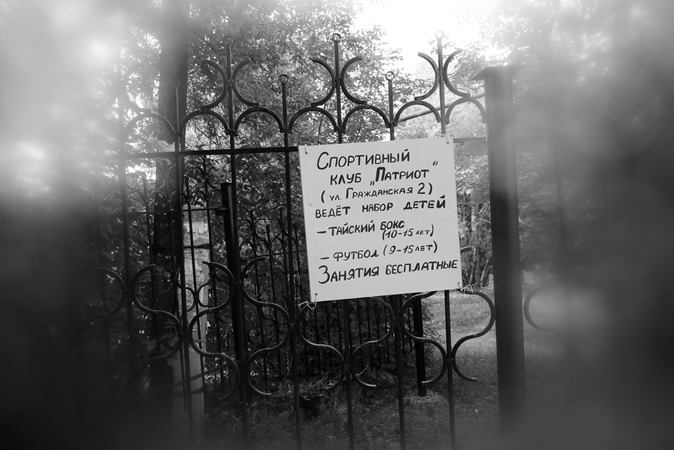 Спортивный
клуб „Патриот"
(ул. Гражданская 2)
ведёт набор детей
– тайский бокс
(10-15 лет)
– футбол (9-15 лет)
Занятия бесплатные